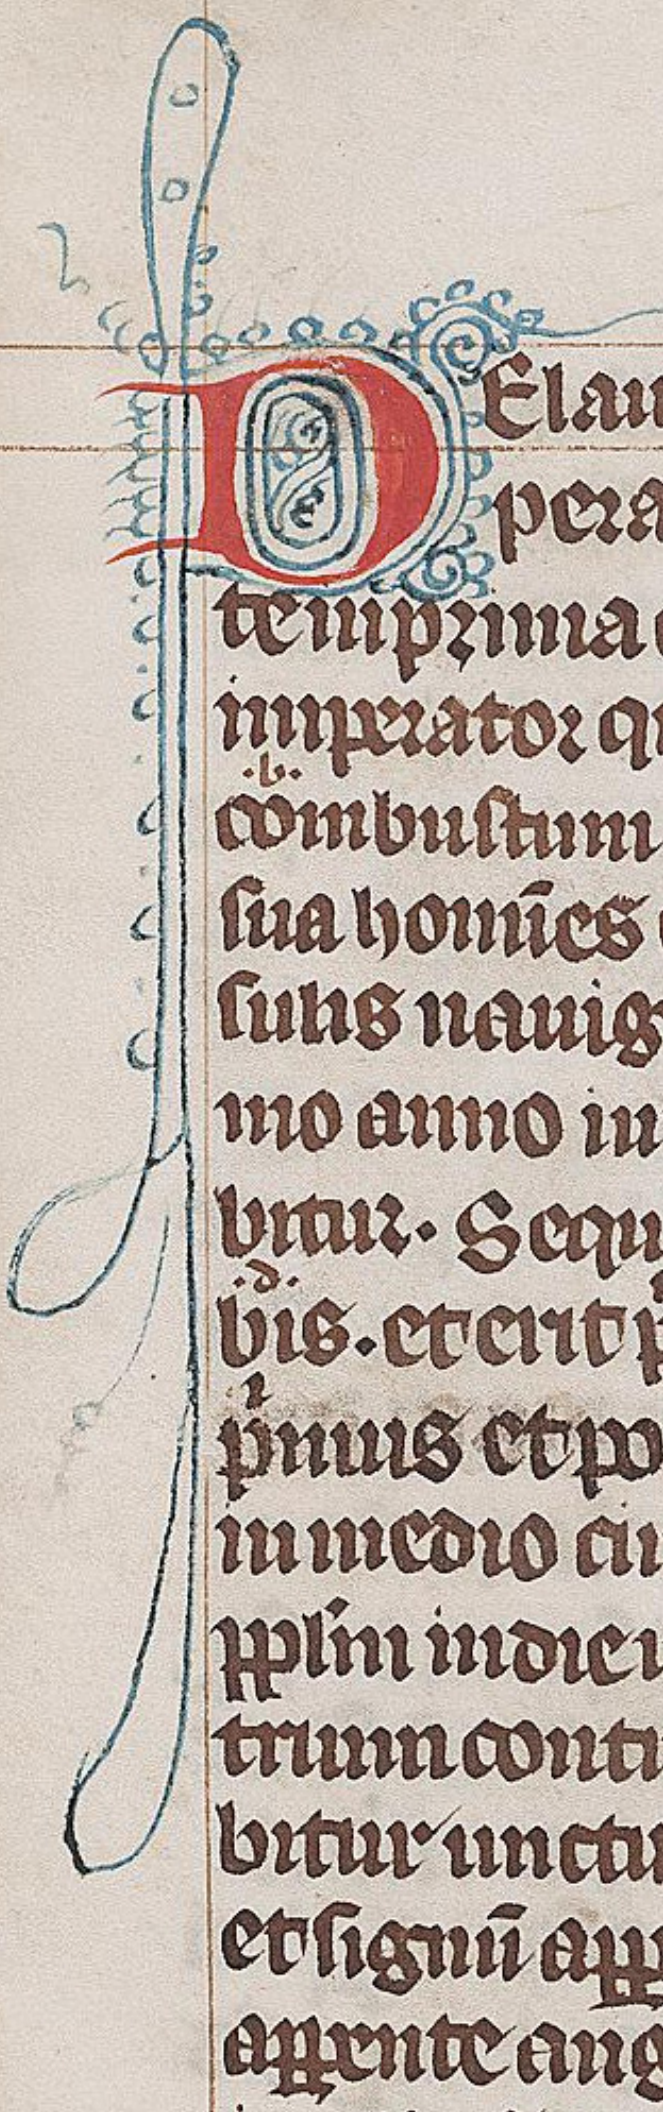 DElau
pera
temprima
imperator qu
.b.
combustum
sua homīes
sulis nauig
mo anno in
bitur. Sequ
.d.
bis. et erit p
pimus et po
in medio ciu
pplm in die
trium conti
bitur unctu
et signū app
apparente aug